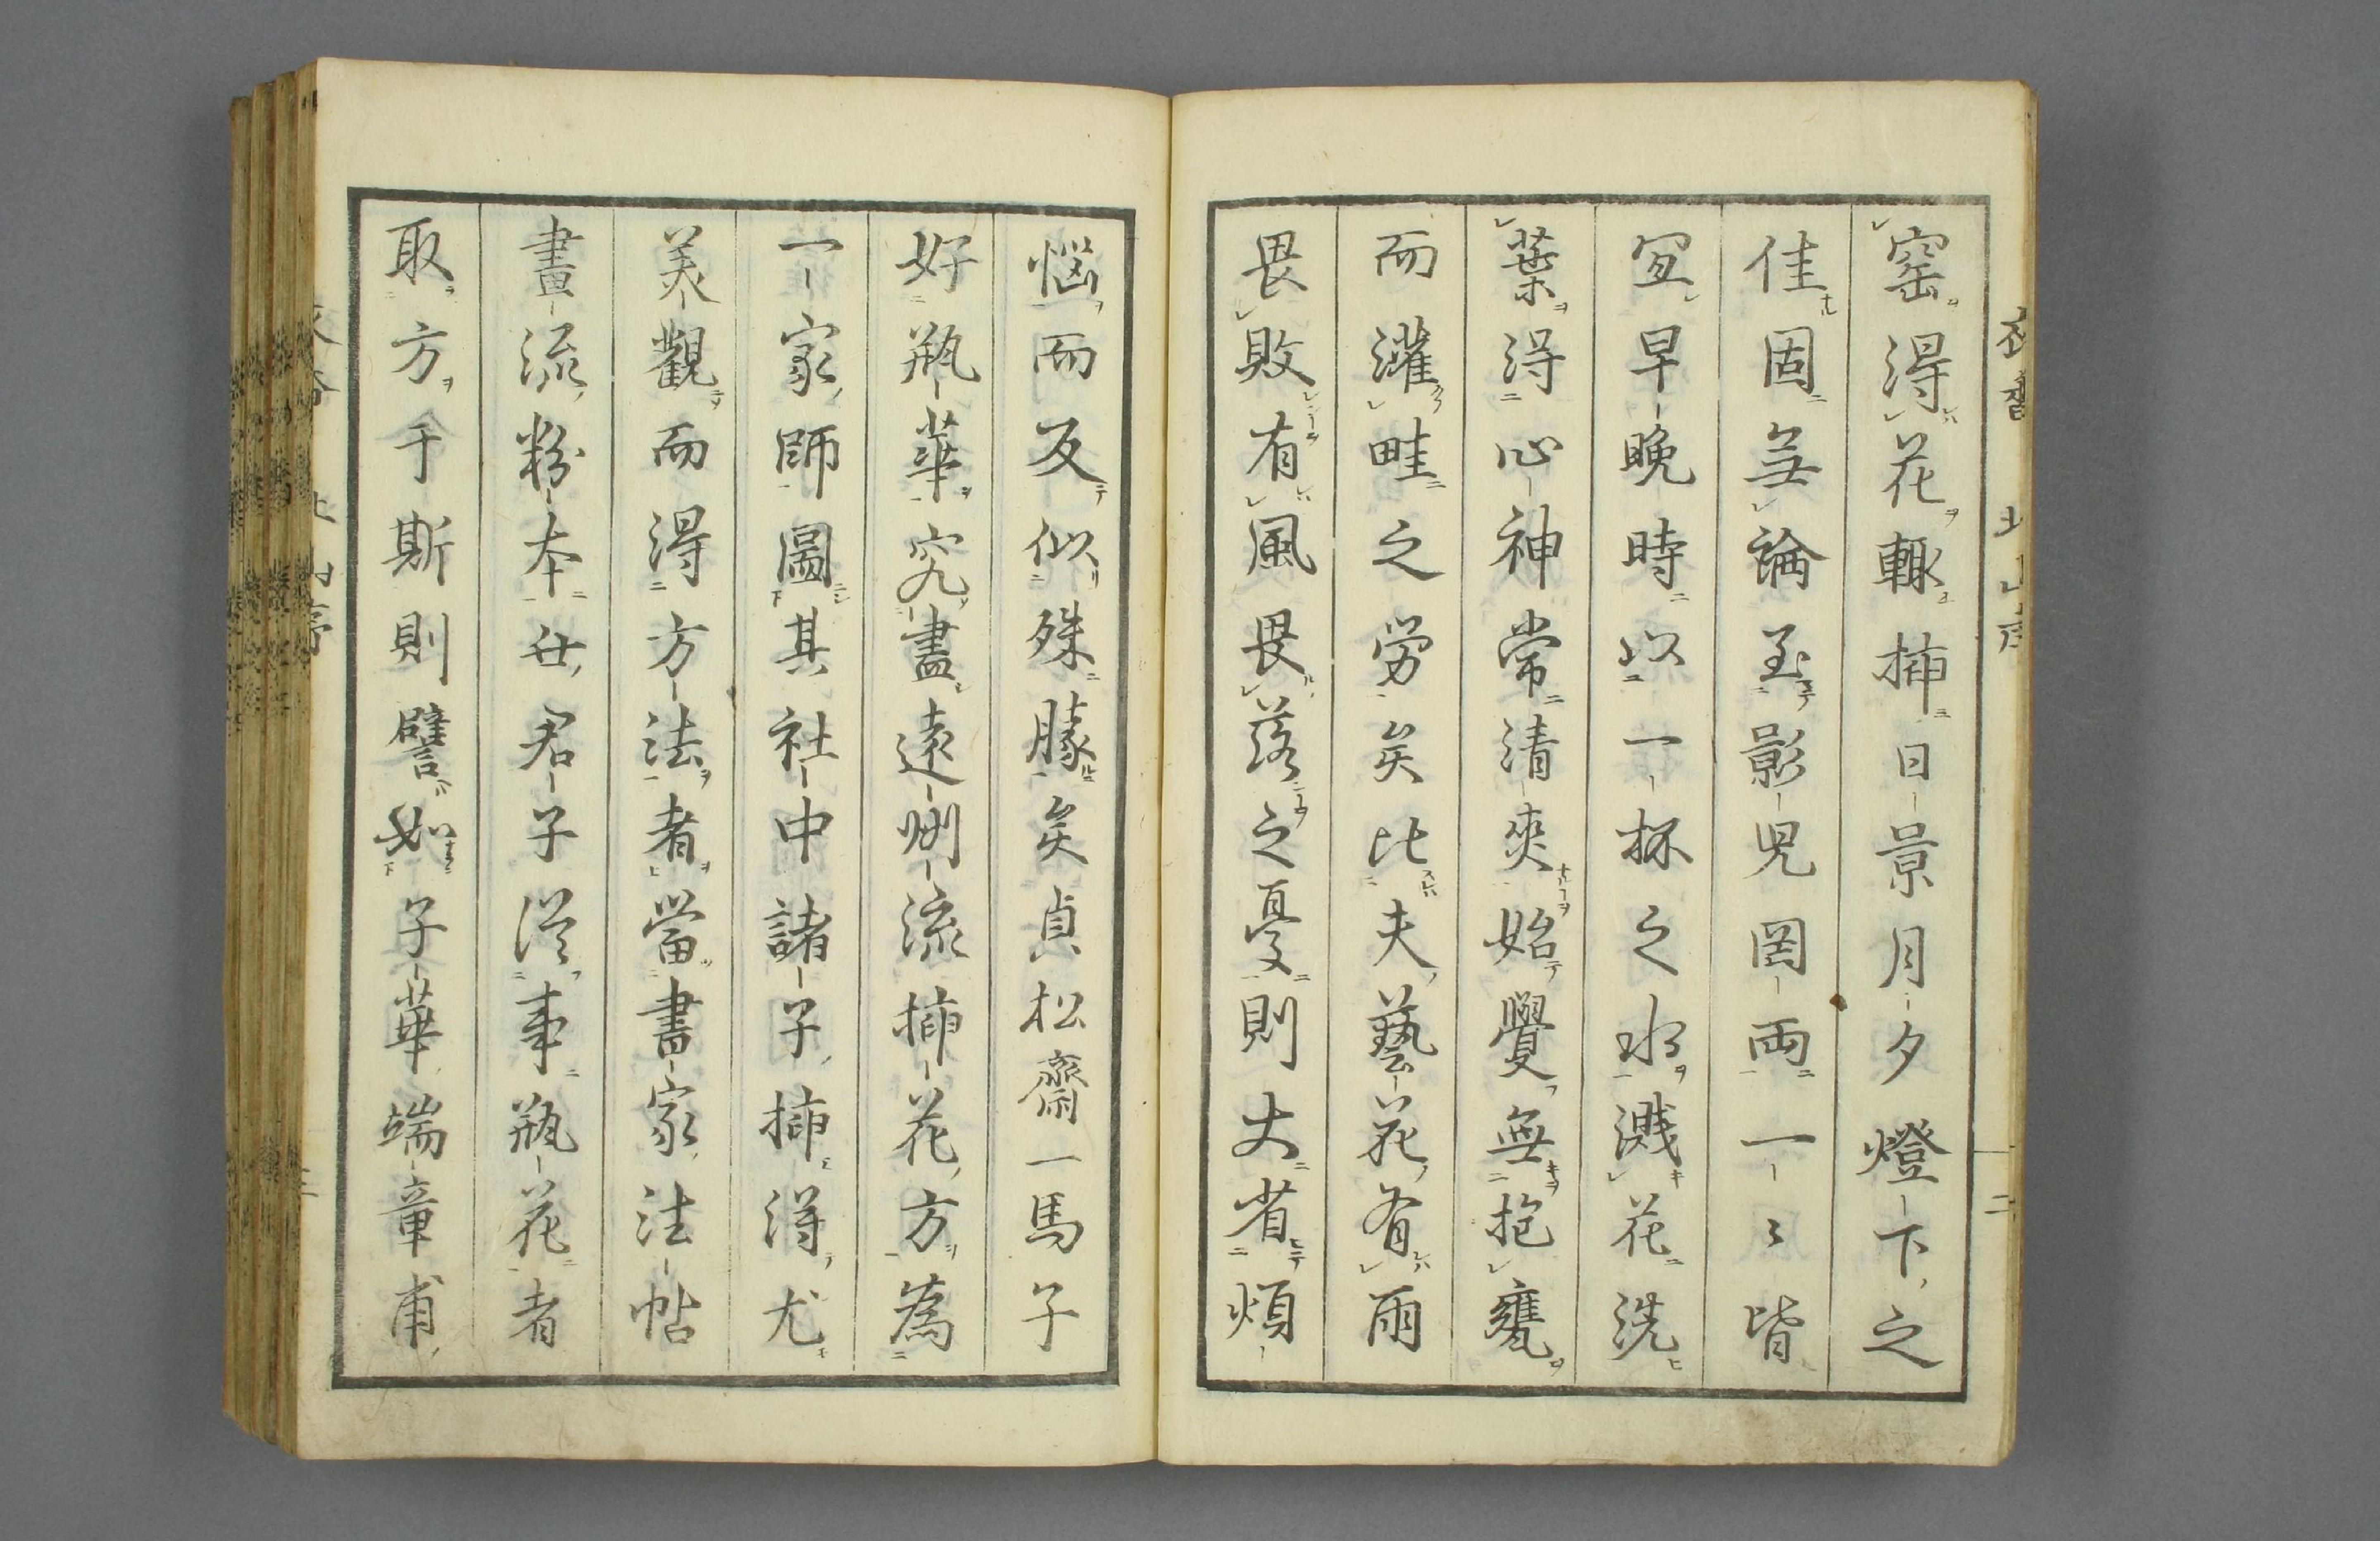 窰得花輙揷日景月夕燈下之
佳固無論至影児罔両一〻皆
宜早晩時以一杯之水濺花洗
葉得心神常清爽始覺無抱甕
而灌畦之労矣比夫藝花有雨
畏敗有風畏落之憂則大省煩
惱而反似殊勝矣貞松齋一馬子
好瓶華究盡遠州流揷花方為
一家師圖其社中諸子揷得尤
美觀而得方法者當書家法帖
畫流粉本世君子従事瓶花者
取方于斯則譬如子華端章甫
二